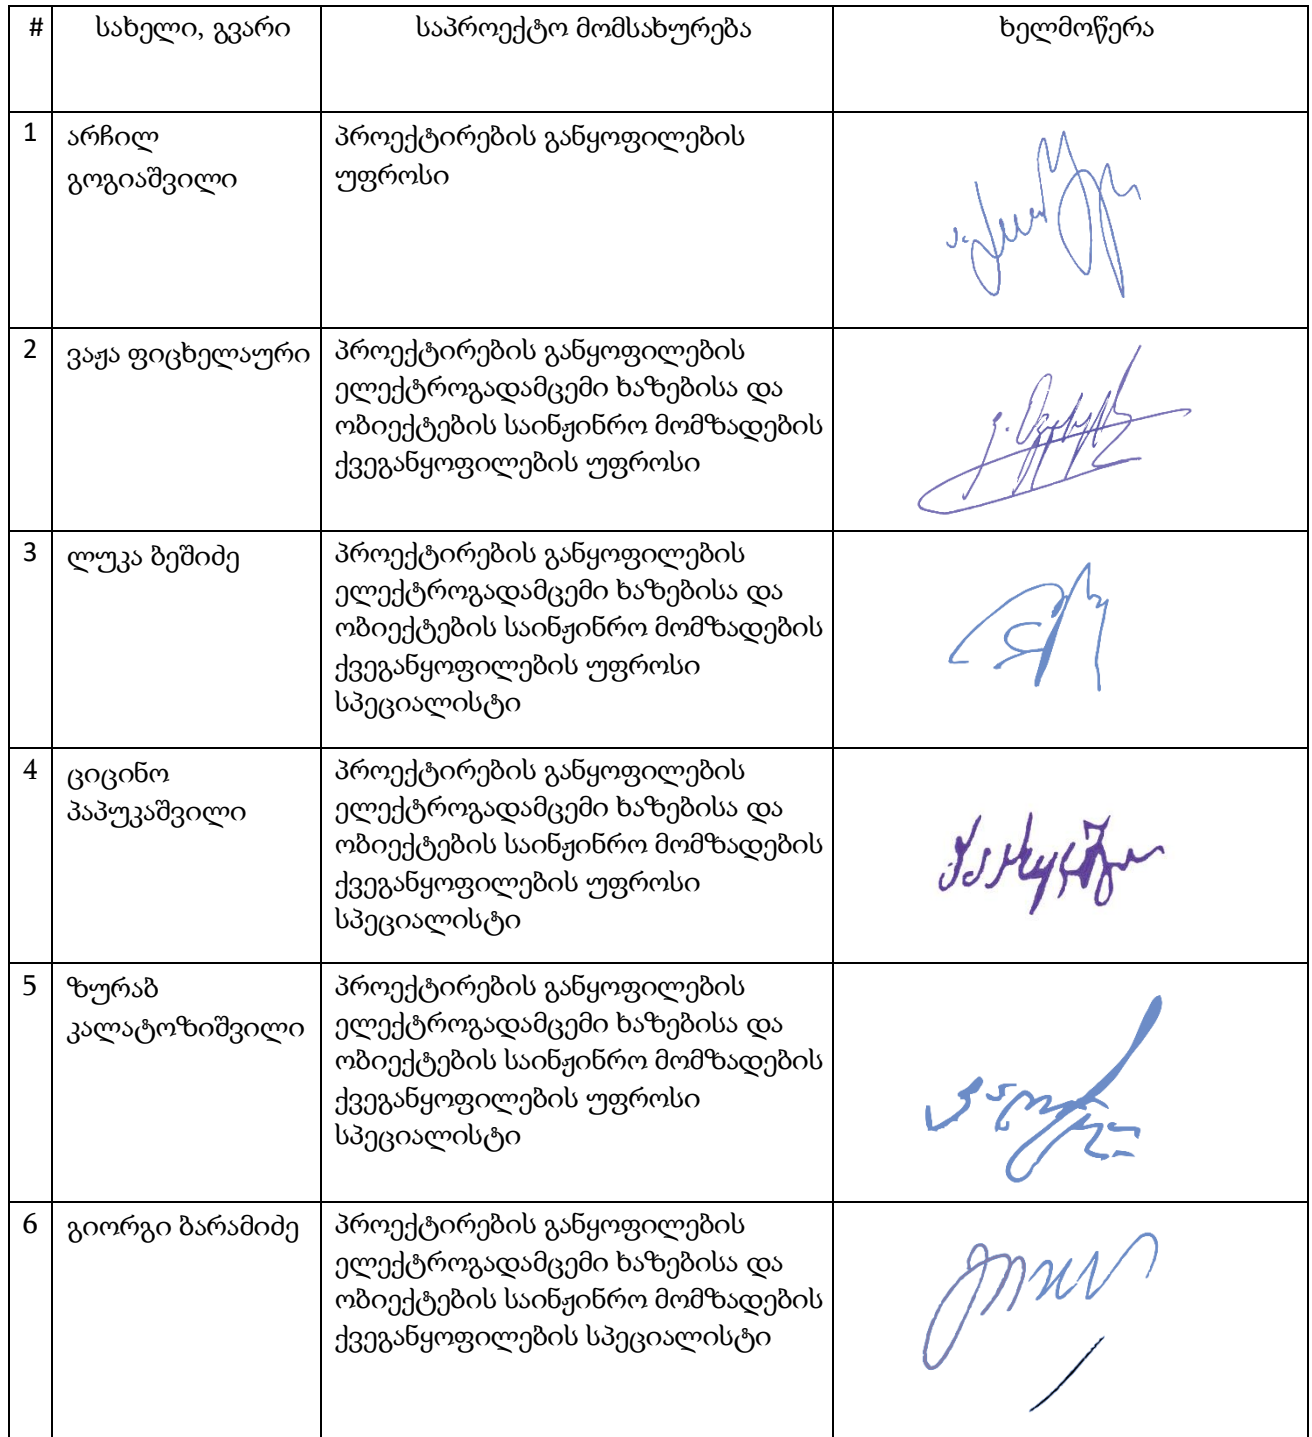 # სახელი, გვარი საპროექტო მომსახურება ხელმოწერა
1 არჩილ გოგიაშვილი
პროექტირების განყოფილების
უფროსი
2 ვაჟა ფიცხელაური
პროექტირების განყოფილების
ელექტროგადამცემი ხაზებისა და
ობიექტების საინჟინრო მომზადების
ქვეგანყოფილების უფროსი
3 ლუკა ბეშიძე
პროექტირების განყოფილების
ელექტროგადამცემი ხაზებისა და
ობიექტების საინჟინრო მომზადების
ქვეგანყოფილების უფროსი
სპეციალისტი
4 ციცინო
პაპუკაშვილი
პროექტირების განყოფილების
ელექტროგადამცემი ხაზებისა და
ობიექტების საინჟინრო მომზადების
ქვეგანყოფილების უფროსი
სპეციალისტი
5 ზურაბ
კალატოზიშვილი
პროექტირების განყოფილების
ელექტროგადამცემი ხაზებისა და
ობიექტების საინჟინრო მომზადების
ქვეგანყოფილების უფროსი
სპეციალისტი
6 გიორგი ბარამიძე
პროექტირების განყოფილების
ელექტროგადამცემი ხაზებისა და
ობიექტების საინჟინრო მომზადების
ქვეგანყოფილების სპეციალისტი